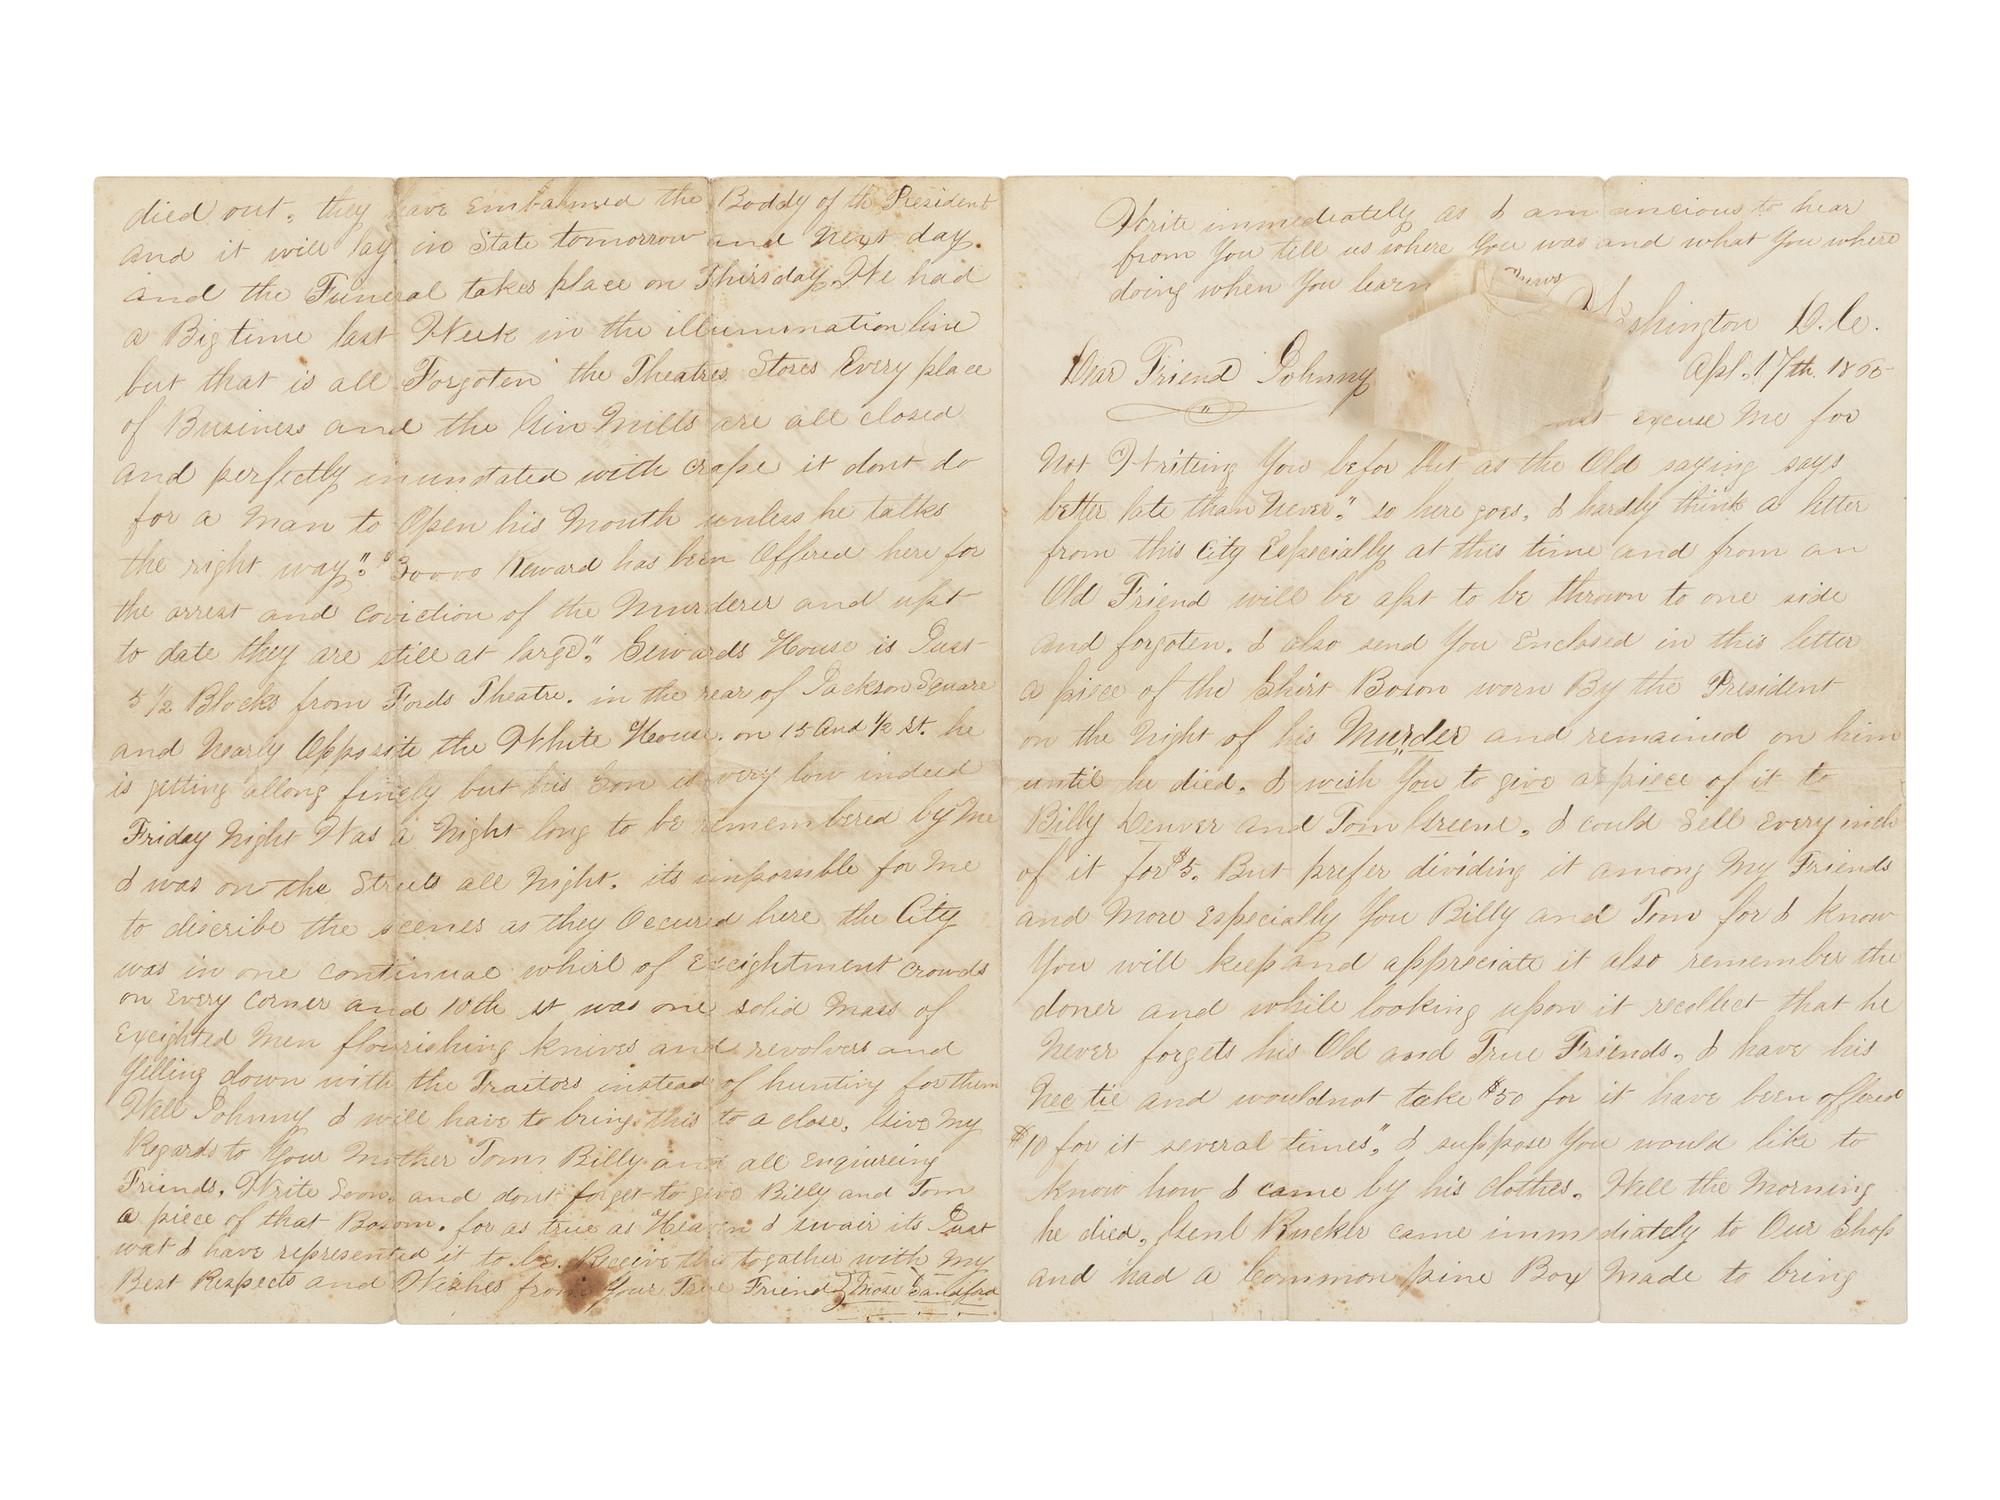 died out. they have Embalmed the Boddy of the President
and it will lay in State tomorrow and Next day.
and the Funeral takes place on Thirsday. We had
a Big time last Week in the illumination line
but that is all Forgoten the Theatres Stores Every place
of Business and the Gin Mills are all closed
and perfectly inundated with crape it dont do
for a Man to Open his Mouth unless he talks
the right way". $30000 Reward has been Offered here for
the arrest and coviction of the Murderer and upt
to date they are still at large". Sewards House is Just
5 1/2 Blocks from Fords Theatre. in the rear of Jackson Square
and Nearly Opposite the White House. on 15 and 1/2 St. he
is getting allong finely but his Son is very low indeed
Friday Night Was a Night long to be remembered by Me
I was on the Streets all Night. its impossible for Me
to discribe the scenes as they Occured here the City
was in one continual whirl of Exeightment crowds
on Every Corner and 10th St was one solid Mass of
Exeighted Men flourishing knives and revolvers and
Yelling down with the Traitors instead of hunting for them
Well Johnny I will have to bring this to a close. Give My
Regards to Your Mother Tom Billy and all Enquireing
Friends. Write Soon. and dont forget to give Billy and Tom
a piece of that Bosom. for as true as Heaven I swair its Just
wat I have represented it to be. Receive this togather with My
Best Respects and Wishes from Your True Friend Mose Sandford
Write immediately as I am ancious to hear
from You till us where You was and what You where
doing when You learn news
Washington D.C.
Apl. 17th. 1865
Dear Friend Johnny
excuse Me for
Not Writing You befor but as the Old saying says
better late than Never". so here goes. I hardly think a letter
from this City Especially at this time and from an
Old Friend will be apt to be thrown to one side
and forgoten. I also send You Enclosed in this letter
a piece of the Shirt Boson worn By the President
on the Night of his Murder and remained on him
until he died. I wish You to give a piece of it to
Billy Denver and Tom Greene. I could Sell Every inch
of it for $5. But prefer dividing it among My Friends
and More Especially You Billy and Tom for I know
You will keep and appreciate it also remember the
doner and while looking upon it recollect that he
Never forgets his Old and True Friends. I have his
Nec tie and wouldnot take $50 for it have been offered
$10 for it several times". I suppose You would like to
know how I came by his clothes. Well the Morning
he died. Genl Rucker came immediately to Our Shop
and had a Common pine Box Made to bring